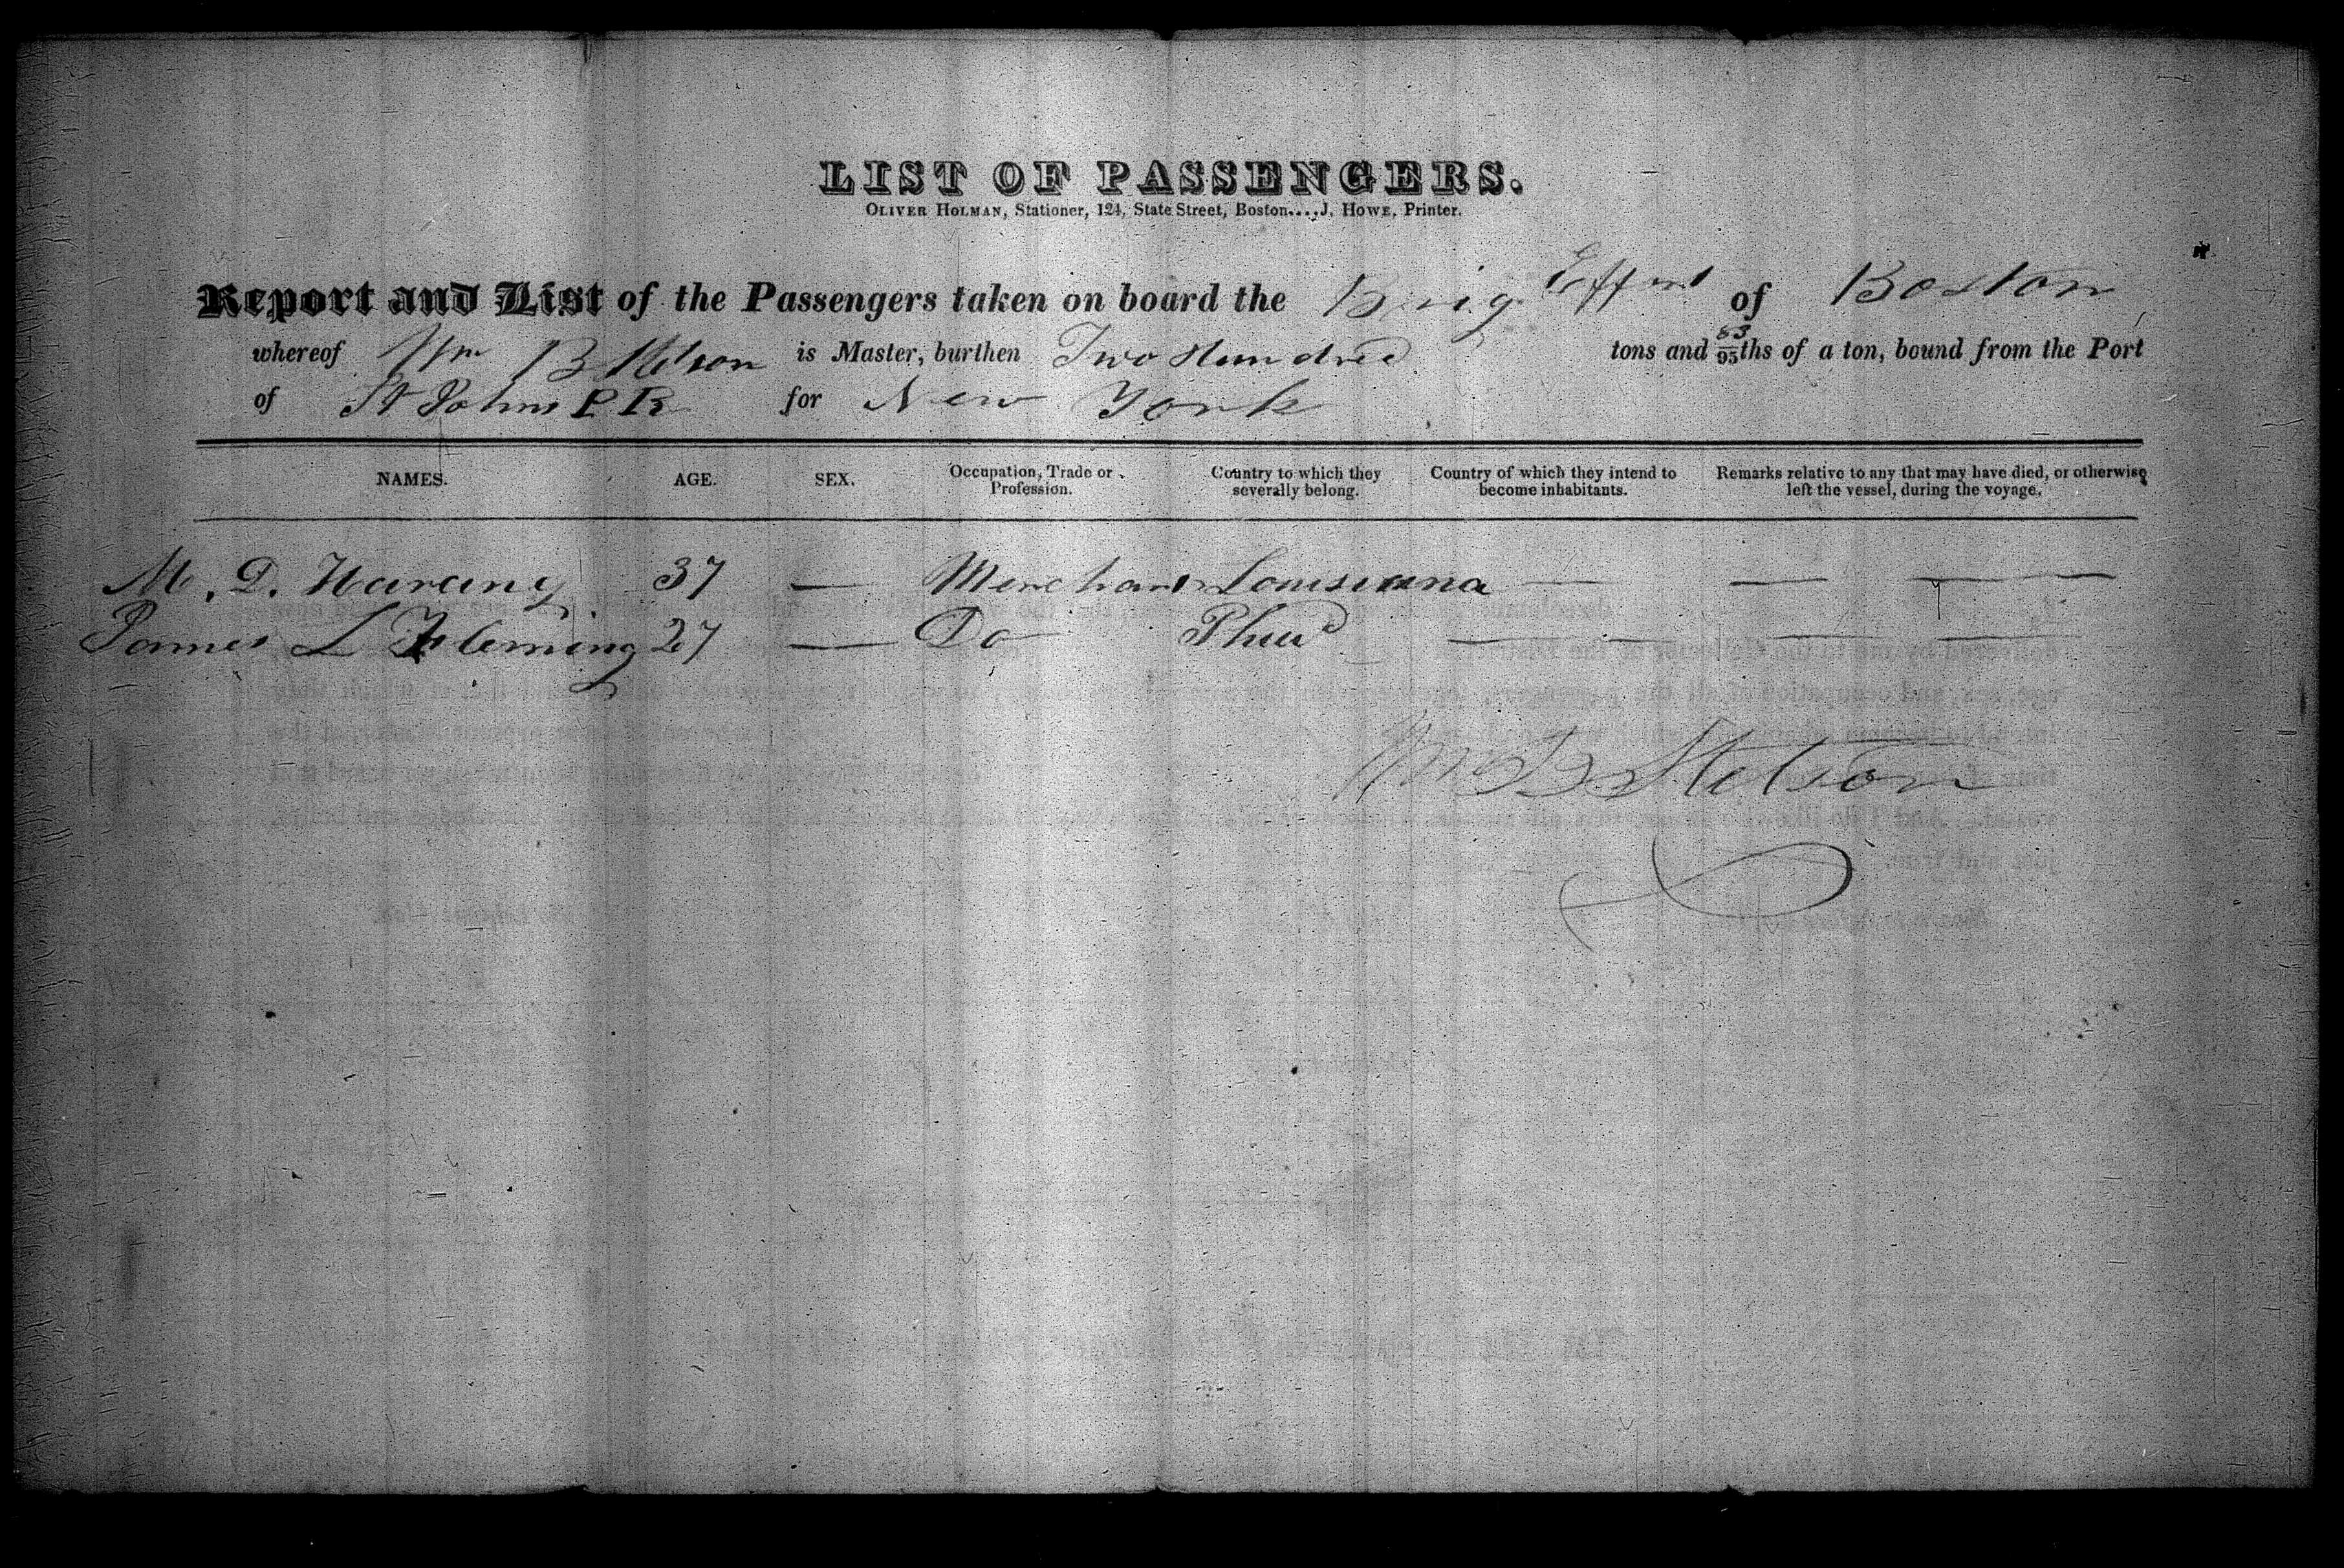 LIST OF PASSENGERS.
OLIVER HOLMAN, Stationer, 124, State Street, Boston....J. HOWE, Printer.
Report and List of the Passengers taken on board the Brig Effort of Boston
whereof Wm B Stetson is Master, burthen Two Hundred tons and 83/95ths of a ton, bound from the Port
of St Johns P R for New York
NAMES. AGE. SEX. Occupation, Trade or Profession. Country to which they severally belong. Country of which they intend to become inhabitants. Remarks relative to any that may have died, or otherwise left the vessel, during the voyage.
M. D. Harang 37 — Merchant Louisiana — — —
James L Fleming 27 — Do — — — —
Wm B Stetson